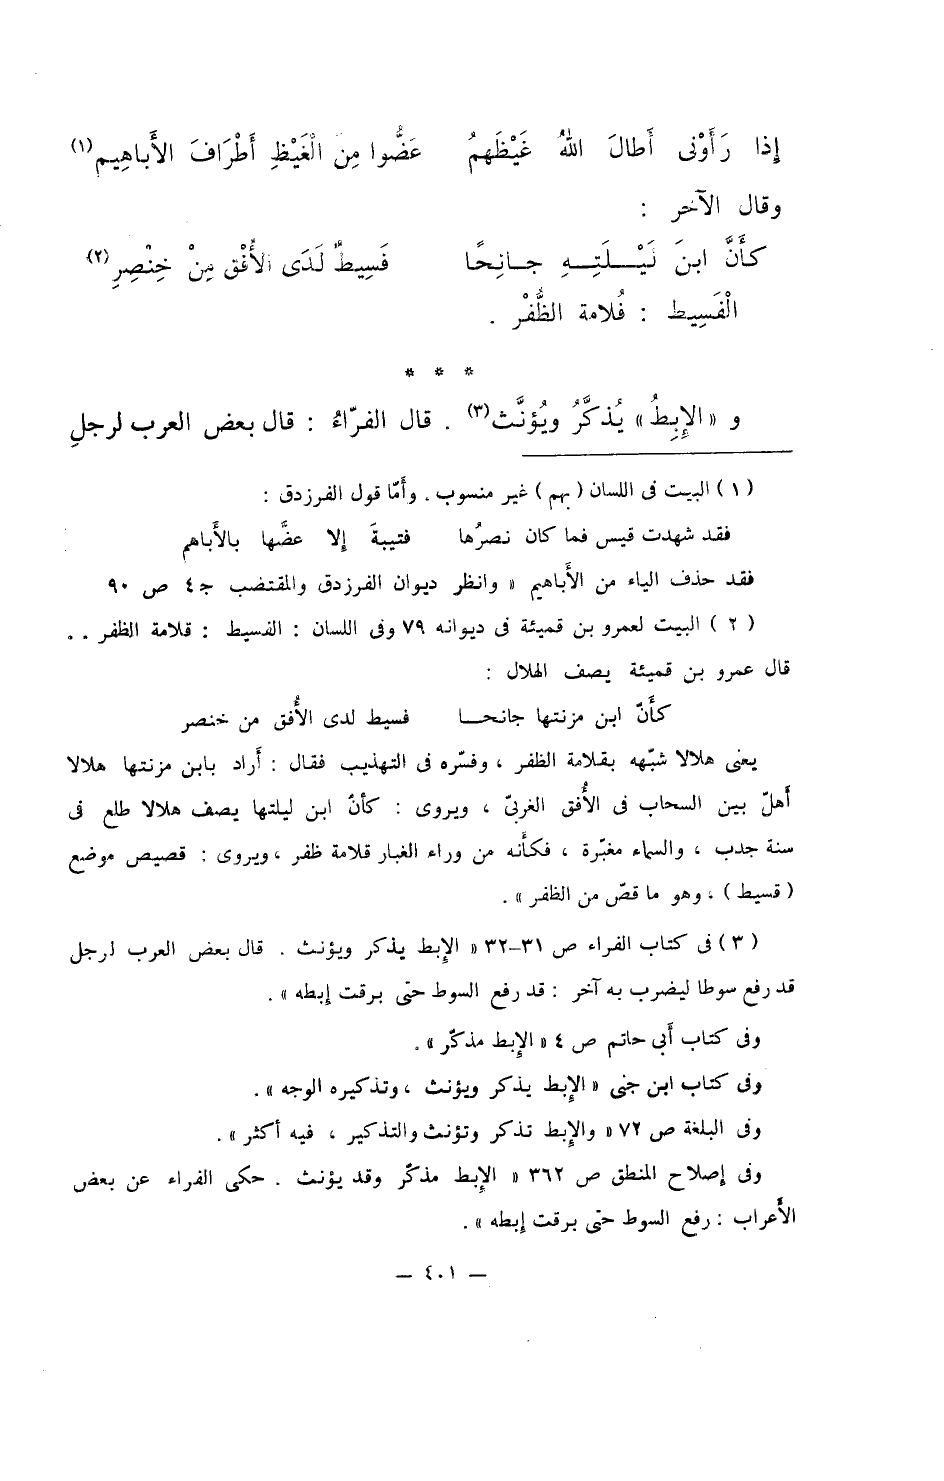 إذا رَأَوْنى أَطالَ اللهُ غَيْظَهمُ عَضُّوا مِن الْغَيْظِ أَطْرَافَ الأَباهِيم(١)
وقال الآخر :
كأَنَّ ابنَ لَيْـلَتِـهِ جـانِحًا فَسِيطٌ لَدَى الأُفْق مِنْ خِنْصِرِ(٢)
الْفَسِيط : قُلامة الظُّفْر .
* * *
و « الإِبِطُ » يُذكَّرُ ويُؤنَّث(٣) . قال الفرّاءُ : قال بعض العرب لرجلٍ
( ١ ) البيت فى اللسان ( بهم ) غير منسوب . وأمّا قول الفرزدق :
فقد شهدت قيس فما كان نصرُها قتيبةَ إلا عضَّها بالأَباهم
فقد حذف الياء من الأَباهيم « وانظر ديوان الفرزدق والمقتضب جـ٤ ص ٩٠
( ٢ ) البيت لعمرو بن قميئة فى ديوانه ٧٩ وفى اللسان : الفسيط : قلامة الظفر . .
قال عمرو بن قميئة يصف الهلال :
كأَنّ ابن مزنتها جانحـا فسيط لدى الأُفق من خنصر
يعنى هلالا شبّهه بقلامة الظفر ، وفسّره فى التهذيب فقال : أَراد بابن مزنتها هلالا
أَهلّ بين السحاب فى الأُفق الغربىّ ، ويروى : كأنّ ابن ليلتها يصف هلالا طلع فى
سنة جدب ، والسماء مغبّرة ، فكأَنه من وراء الغبار قلامة ظفر ، ويروى : قصيص موضع
( قسيط ) ، وهو ما قصّ من الظفر » .
( ٣ ) فى كتاب الفراء ص ٣١-٣٢ « الإِبط يذكر ويؤنث . قال بعض العرب لرجل
قد رفع سوطا ليضرب به آخر : قد رفع السوط حتى برقت إبطه » .
وفى كتاب أَبى حاتم ص ٤ « الإبط مذكّر » .
وفى كتاب ابن جنى « الإبط يذكر ويؤنث ، وتذكيره الوجه » .
وفى البلغة ص ٧٢ « والإبط تذكر وتؤنث والتذكير ، فيه أكثر » .
وفى إصلاح المنطق ص ٣٦٢ « الإبط مذكّر وقد يؤنث . حكى الفراء عن بعض
الأَعراب : رفع السوط حتى برقت إبطه » .
— ٤٠١ —